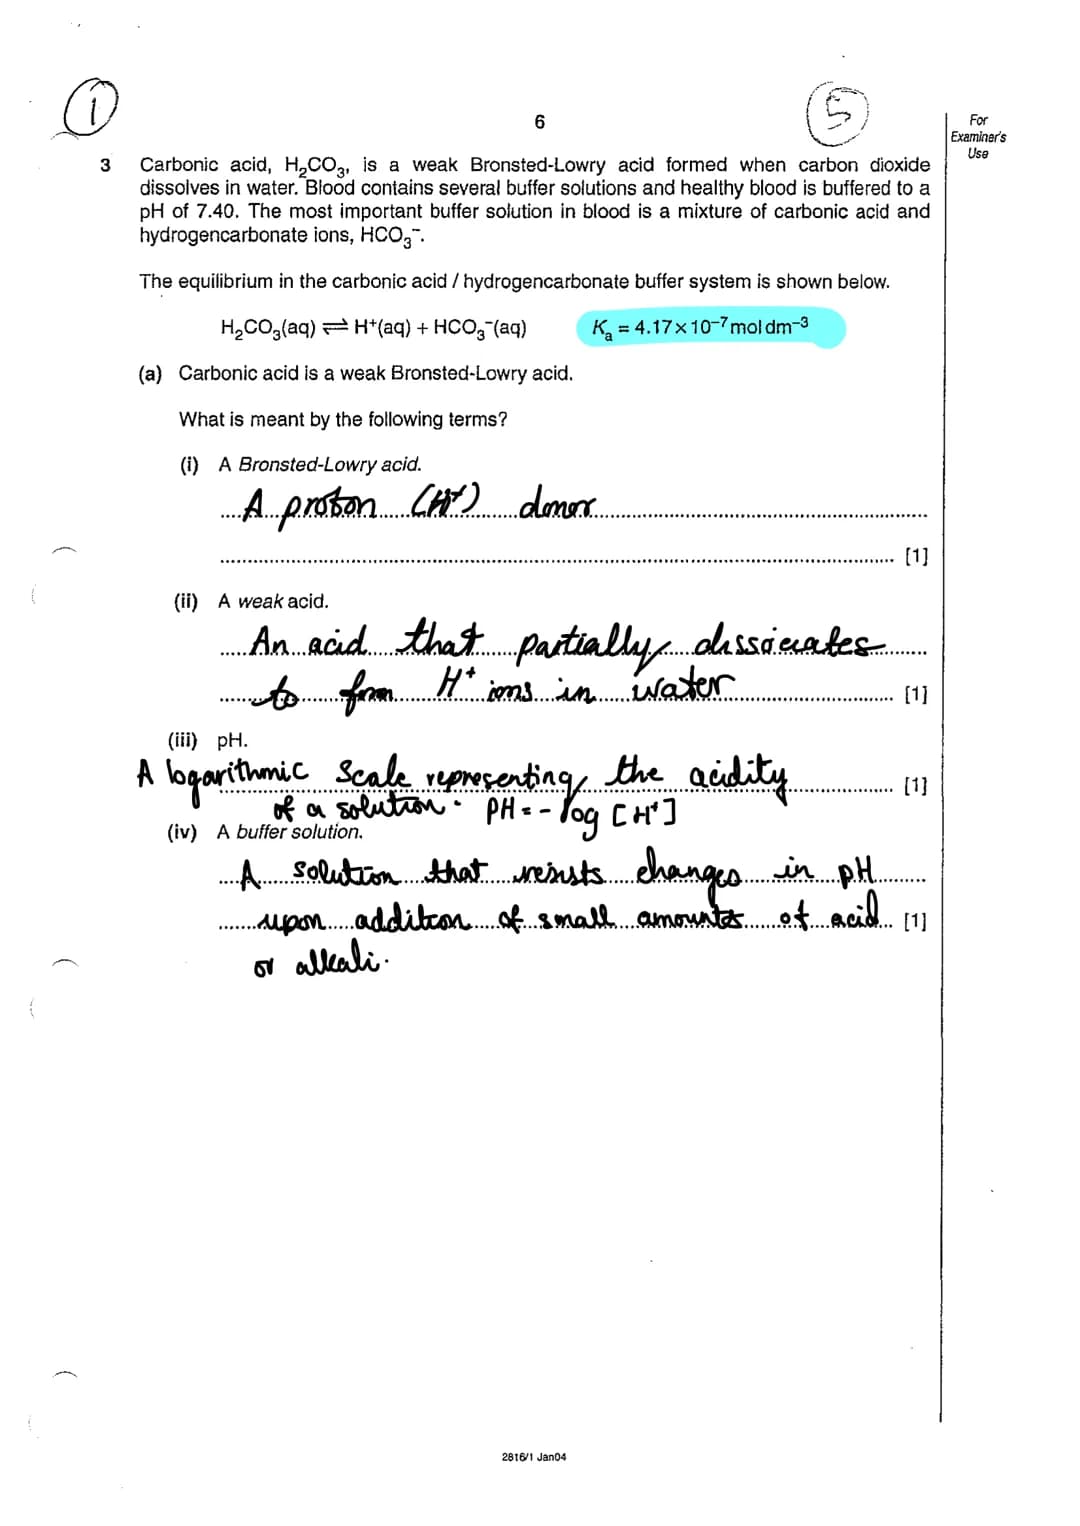 1
5
6
For
Examiner's
Use
3 Carbonic acid, H₂CO₃, is a weak Bronsted-Lowry acid formed when carbon dioxide
dissolves in water. Blood contains several buffer solutions and healthy blood is buffered to a
pH of 7.40. The most important buffer solution in blood is a mixture of carbonic acid and
hydrogencarbonate ions, HCO₃⁻.
The equilibrium in the carbonic acid / hydrogencarbonate buffer system is shown below.
H₂CO₃(aq) ⇌ H⁺(aq) + HCO₃⁻(aq) Kₐ = 4.17×10⁻⁷ mol dm⁻³
(a) Carbonic acid is a weak Bronsted-Lowry acid.
What is meant by the following terms?
(i) A Bronsted-Lowry acid.
A proton (H⁺) donor
[1]
(ii) A weak acid.
An acid that partially dissociates
to form H⁺ ions in water [1]
(iii) pH.
A logarithmic scale representing the acidity [1]
of a solution. PH = - log [H⁺]
(iv) A buffer solution.
A solution that resists changes in pH
upon addition of small amounts of acid [1]
or alkali.
2816/1 Jan04